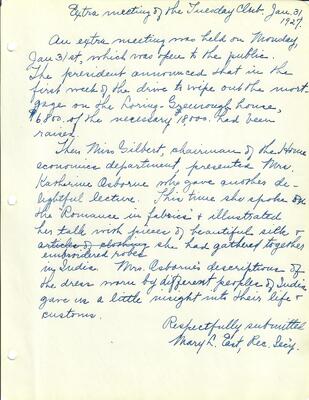 Extra meeting of the Tuesday Club, Jan. 31
1927.
An extra meeting was held on Monday,
Jan 31st, which was open to the public.
The president announced that in the
first week of the drive to wipe out the mort-
gage on the Loring-Greenough house,
$6800. of the necessary 18000. had been
raised.
Then Miss Gilbert, chairman of the Home
economics department, presented Mrs.
Katherine Osborne who gave another de-
lightful lecture. This time she spoke on
the "Romance in fabrics" & illustrated
her talk with pieces of beautiful silk &
articles of clothing she had gathered together
embroidered robes
in India. Mrs. Osborne's descriptions of
the dress worn by different peoples of India
gave us a little insight into their life &
customs.
Respectfully submitted
Mary L. East, Rec. Sec'y.